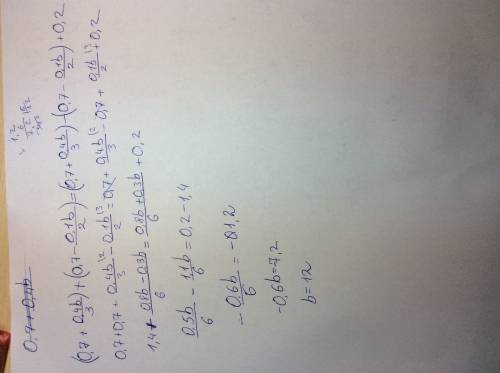 0,7+0,4b
(0,7+0,4b/3)+(0,7-0,1b/2)=(0,7+0,4b/3)-(0,7-0,1b/2)+0,2
0,7+0,7+0,4b/3 |2 - 0,1b/2 |3=0,7+0,4b/3 |2 -0,7+0,1b/2 |3+0,2
1,4+0,8b-0,3b/6=0,8b+0,3b/6+0,2
0,5b/6-1,1b/6=0,2-1,4
-0,6b/6=-1,2
-0,6b=7,2
b=12